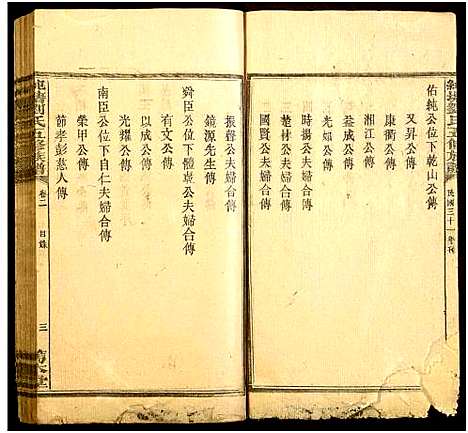 佑純公位下乾山公傳
又昇公傳
康衢公傳
湘江公傳
益成公傳
光如公傳
時揚公夫婦合傳
楚林公夫婦合傳
國賢公夫婦合傳
振聲公夫婦合傳
鏡源先生傳
舜臣公位下體嘉公夫婦合傳
有文公傳
以成公傳
光耀公傳
南臣公位下自仁夫婦合傳
榮甲公傳
節孝彭慈人傳
劉氏五修族譜
卷二
目錄
三
堂
氏五修族譜
民國三十一年刊